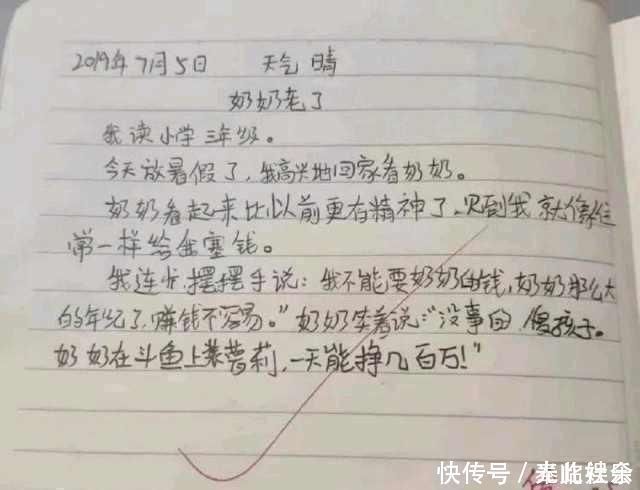 2019年7月5日 天气 晴
奶奶老了
我读小学三年级。
今天放暑假了,我高兴地回家看奶奶。
奶奶看起来比以前更有精神了,见到我就像往
常一样给我塞钱。
我连忙摆摆手说:我不能要奶奶的钱,奶奶那么大
的年纪了,赚钱不容易。"奶奶笑着说:"没事的,傻孩子。
奶奶在斗鱼上装萝莉,一天能挣几百万!"
快传号/